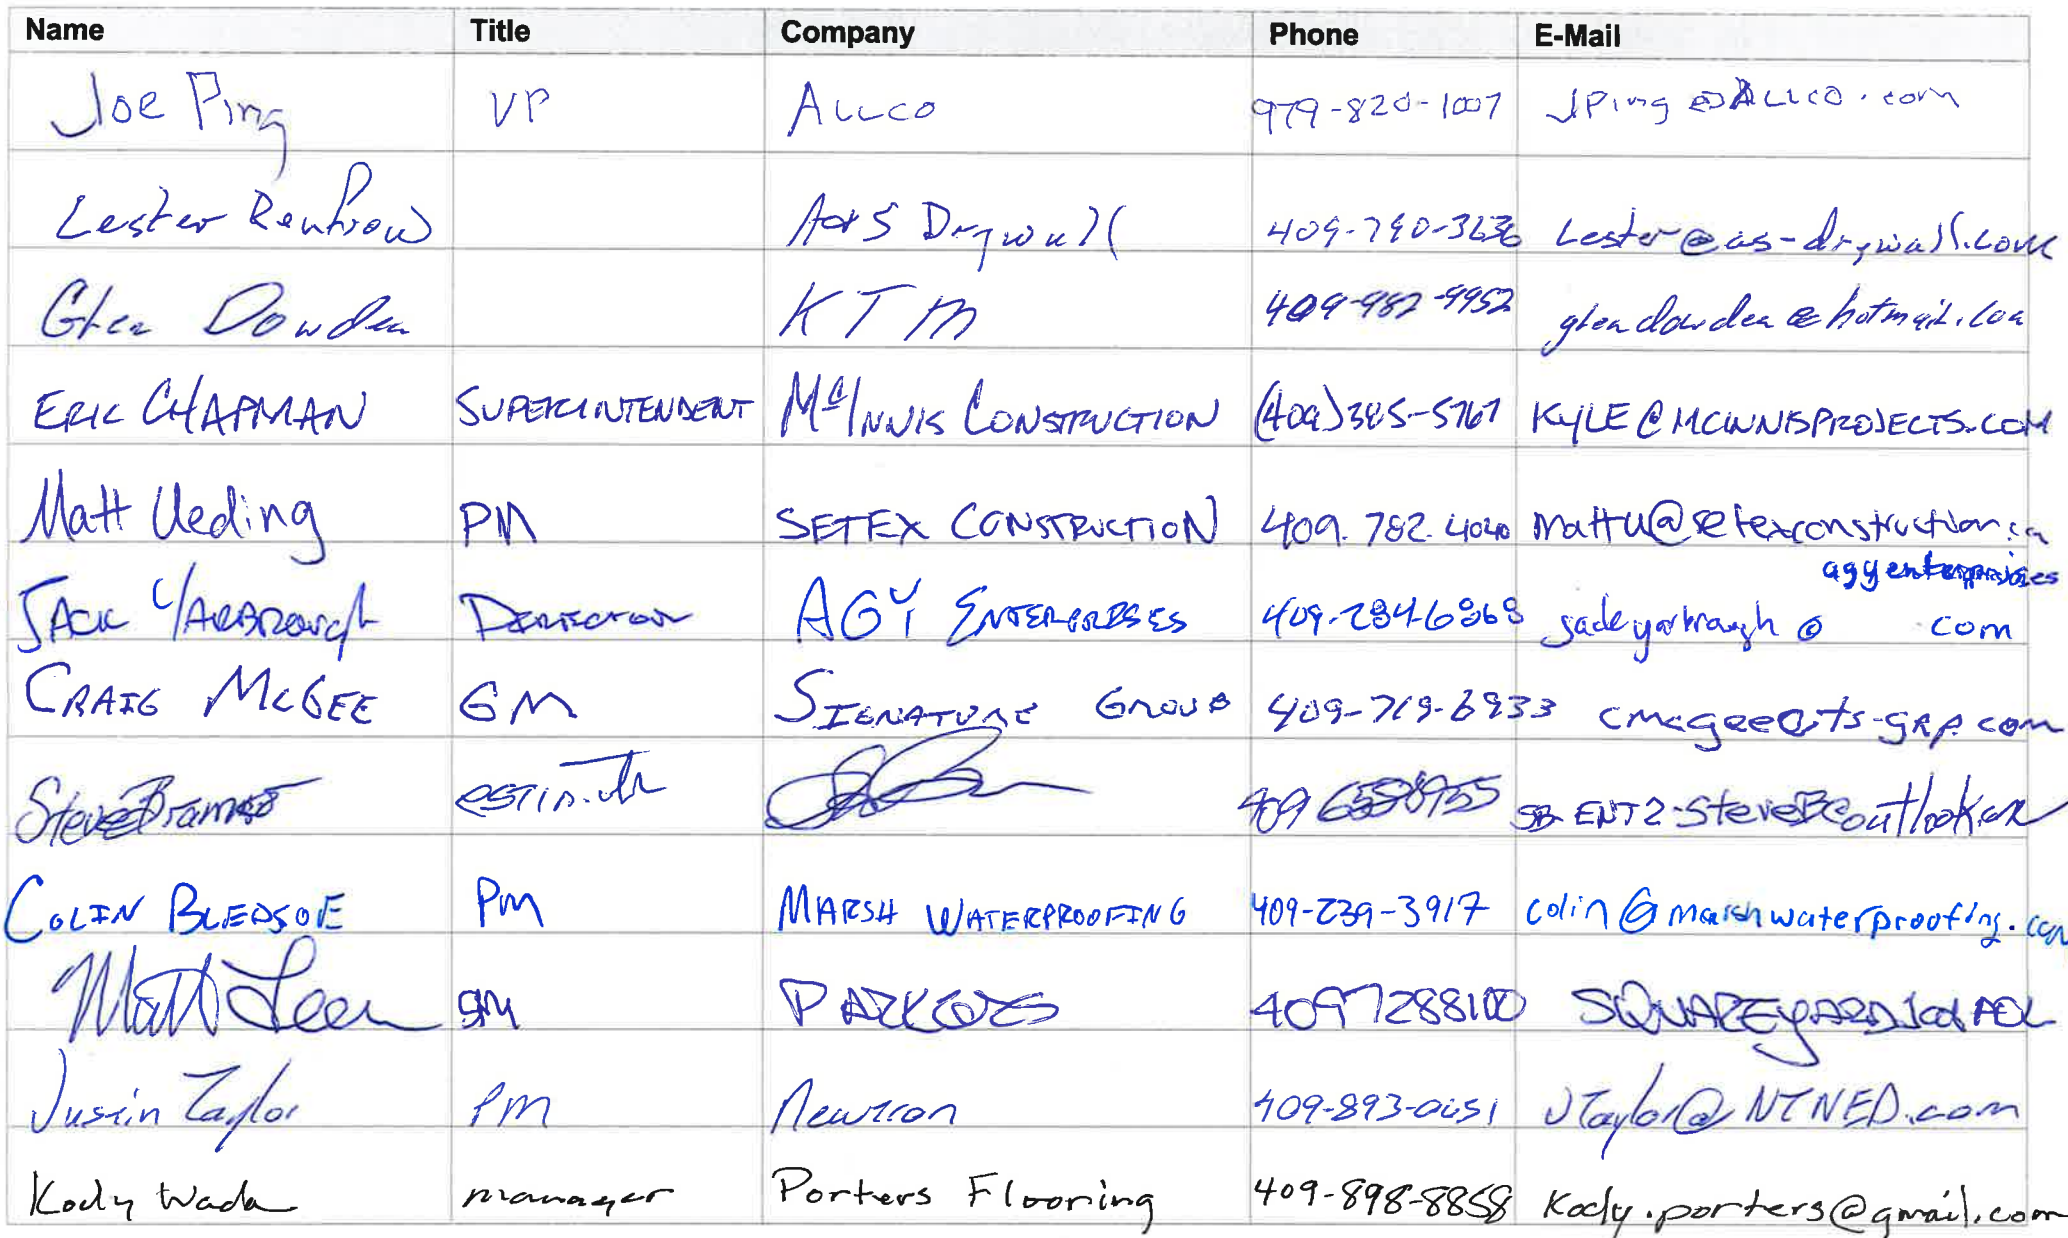 Name Title Company Phone E-Mail
Joe Ping VP ALLCO 979-820-1007 JPing@ALLCO.com
Lester Renfrow A&S Drywall 409-790-3636 Lester@as-drywall.com
Glen Dowden KTM 409-982-9952 glendowden@hotmail.com
ERIC CHAPMAN SUPERINTENDENT McINNIS CONSTRUCTION (409)385-5767 KYLE@MCINNISPROJECTS.COM
Matt Ueding PM SETEX CONSTRUCTION 409.782.4040 mattu@setexconstruction.
aggenterprises
JACK YARBROUGH DIRECTOR AGY ENTERPRISES @ com
CRAIG McGEE GM SIGNATURE GROUP 409-719-6933 cmcgee@ts-grp.com
Steve 409 6558955
COLIN BLEDSOE PM MARSH WATERPROOFING 409-239-3917 colin@marshwaterproofing.com
Matt GM 4097288100
Justin Taylor PM Newtron 409-893-0651 JTaylor@NTNED.com
Kody Wada manager Porters Flooring 409-898-8858 Kody.porters@gmail.com